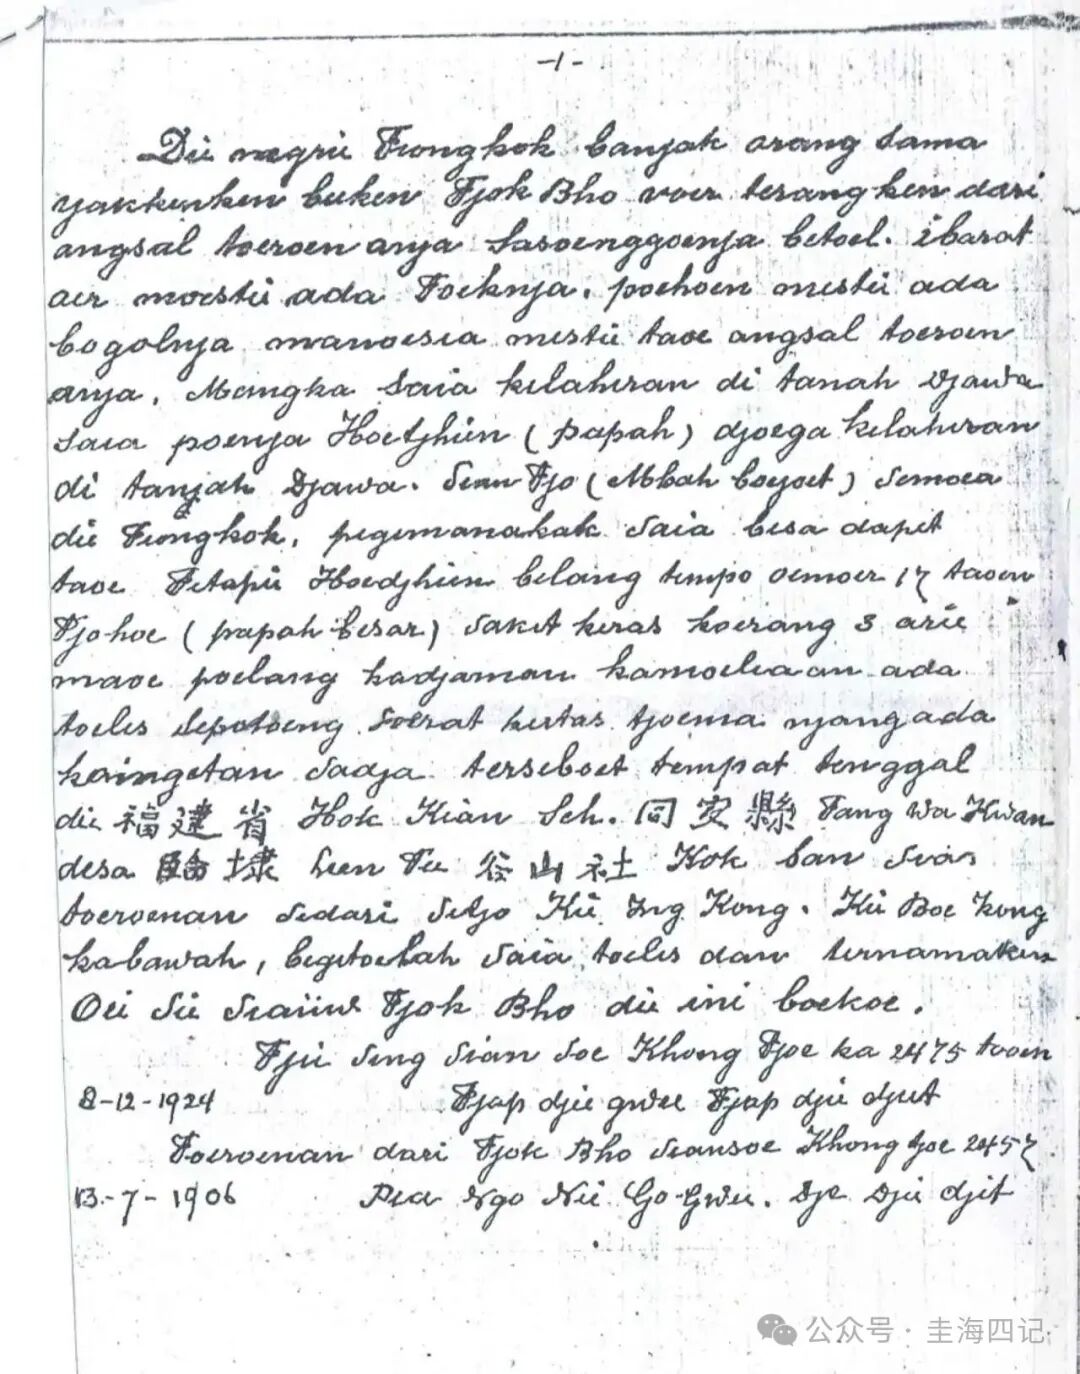 -1-
Di negri Tiongkok banjak orang sama
yakkenken buken Tjok Bho voer terangken dari
angsal toeroen anja sasoenggoenja betoel. ibarat
aer moesti ada Toeknja, poehoen mesti ada
bogolnja manoesia mesti taoe angsal toeroen
anja. Mangka saia kelahiran di tanah Djawa
saia poenja Hoetjhin (papah) djoega kelahiran
di tanjah Djawa. Sien Tjo (Mbah boejoet) semoea
di Tiongkok, pegimanakah saia bisa dapet
taoe Tetapi Hoedjhin belang tempo oemoer 17 taoen
Tjohoe (papah besar) saket keras koerang 3 ari
maoe poelang kadjaman kamoeliaan ada
toelis sepotoeng soerat kertas tjoema njang ada
kaingetan sadja terseboet tempat tenggal
di 福建省 Hok Kian Seh. 同安縣 Tang Wa Kwan
desa 輪埭 Luen Te 谷山社 Kok ban sia
toeroenan sedari Setjo Ki Ing Kong. Ki Boe Kong
kabawah, begitoelah saia toelis dan ternamaken
Oei Si Siaiiw Tjok Bho di ini boekoe.
Tji Sing Sian Soe Khong Tjoe ka 2475 taoen
8-12-1924 Tjap dji gwee Tjap dji djit
Toeroenan dari Tjok Bho Siansoe Khong tjoe 2457
13-7-1906 Pia Ngo Ni Go-Gwee. Dje Dji djit
公众号·圭海四记